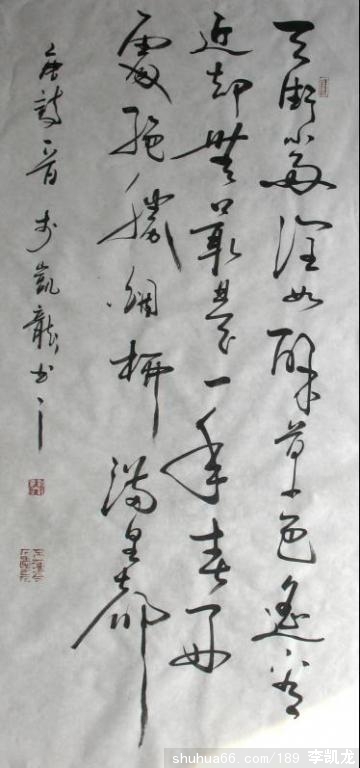 天街小雨潤如酥草色遙看
近却無最是一年春好
處絕勝烟柳滿皇都
唐詩一首李凱龍书
shuhua66.com/189 李凯龙